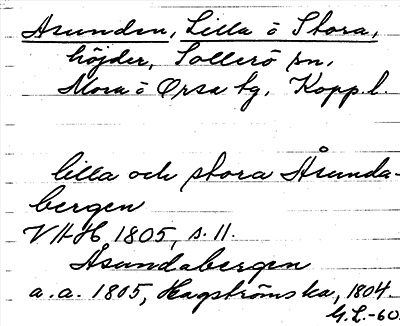 Åsunden, Lilla o Stora,
höjder, Sollerö sn,
Mora o Orsa tg, Kopp. l.
lilla och stora Åsunda-
bergen
VHH 1805, s. 11.
Åsundabergen
a.a. 1805, Hagströms ka, 1804
G.L.-60.